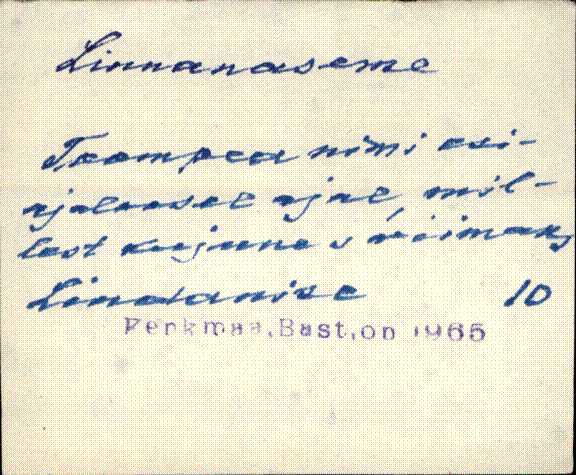 Linnanaseme
Toompea nimi esi-
ajaloosel ajal, mil-
lest kujunes viimaks
Lindanise 10
Perkmaa, Bastion 1965